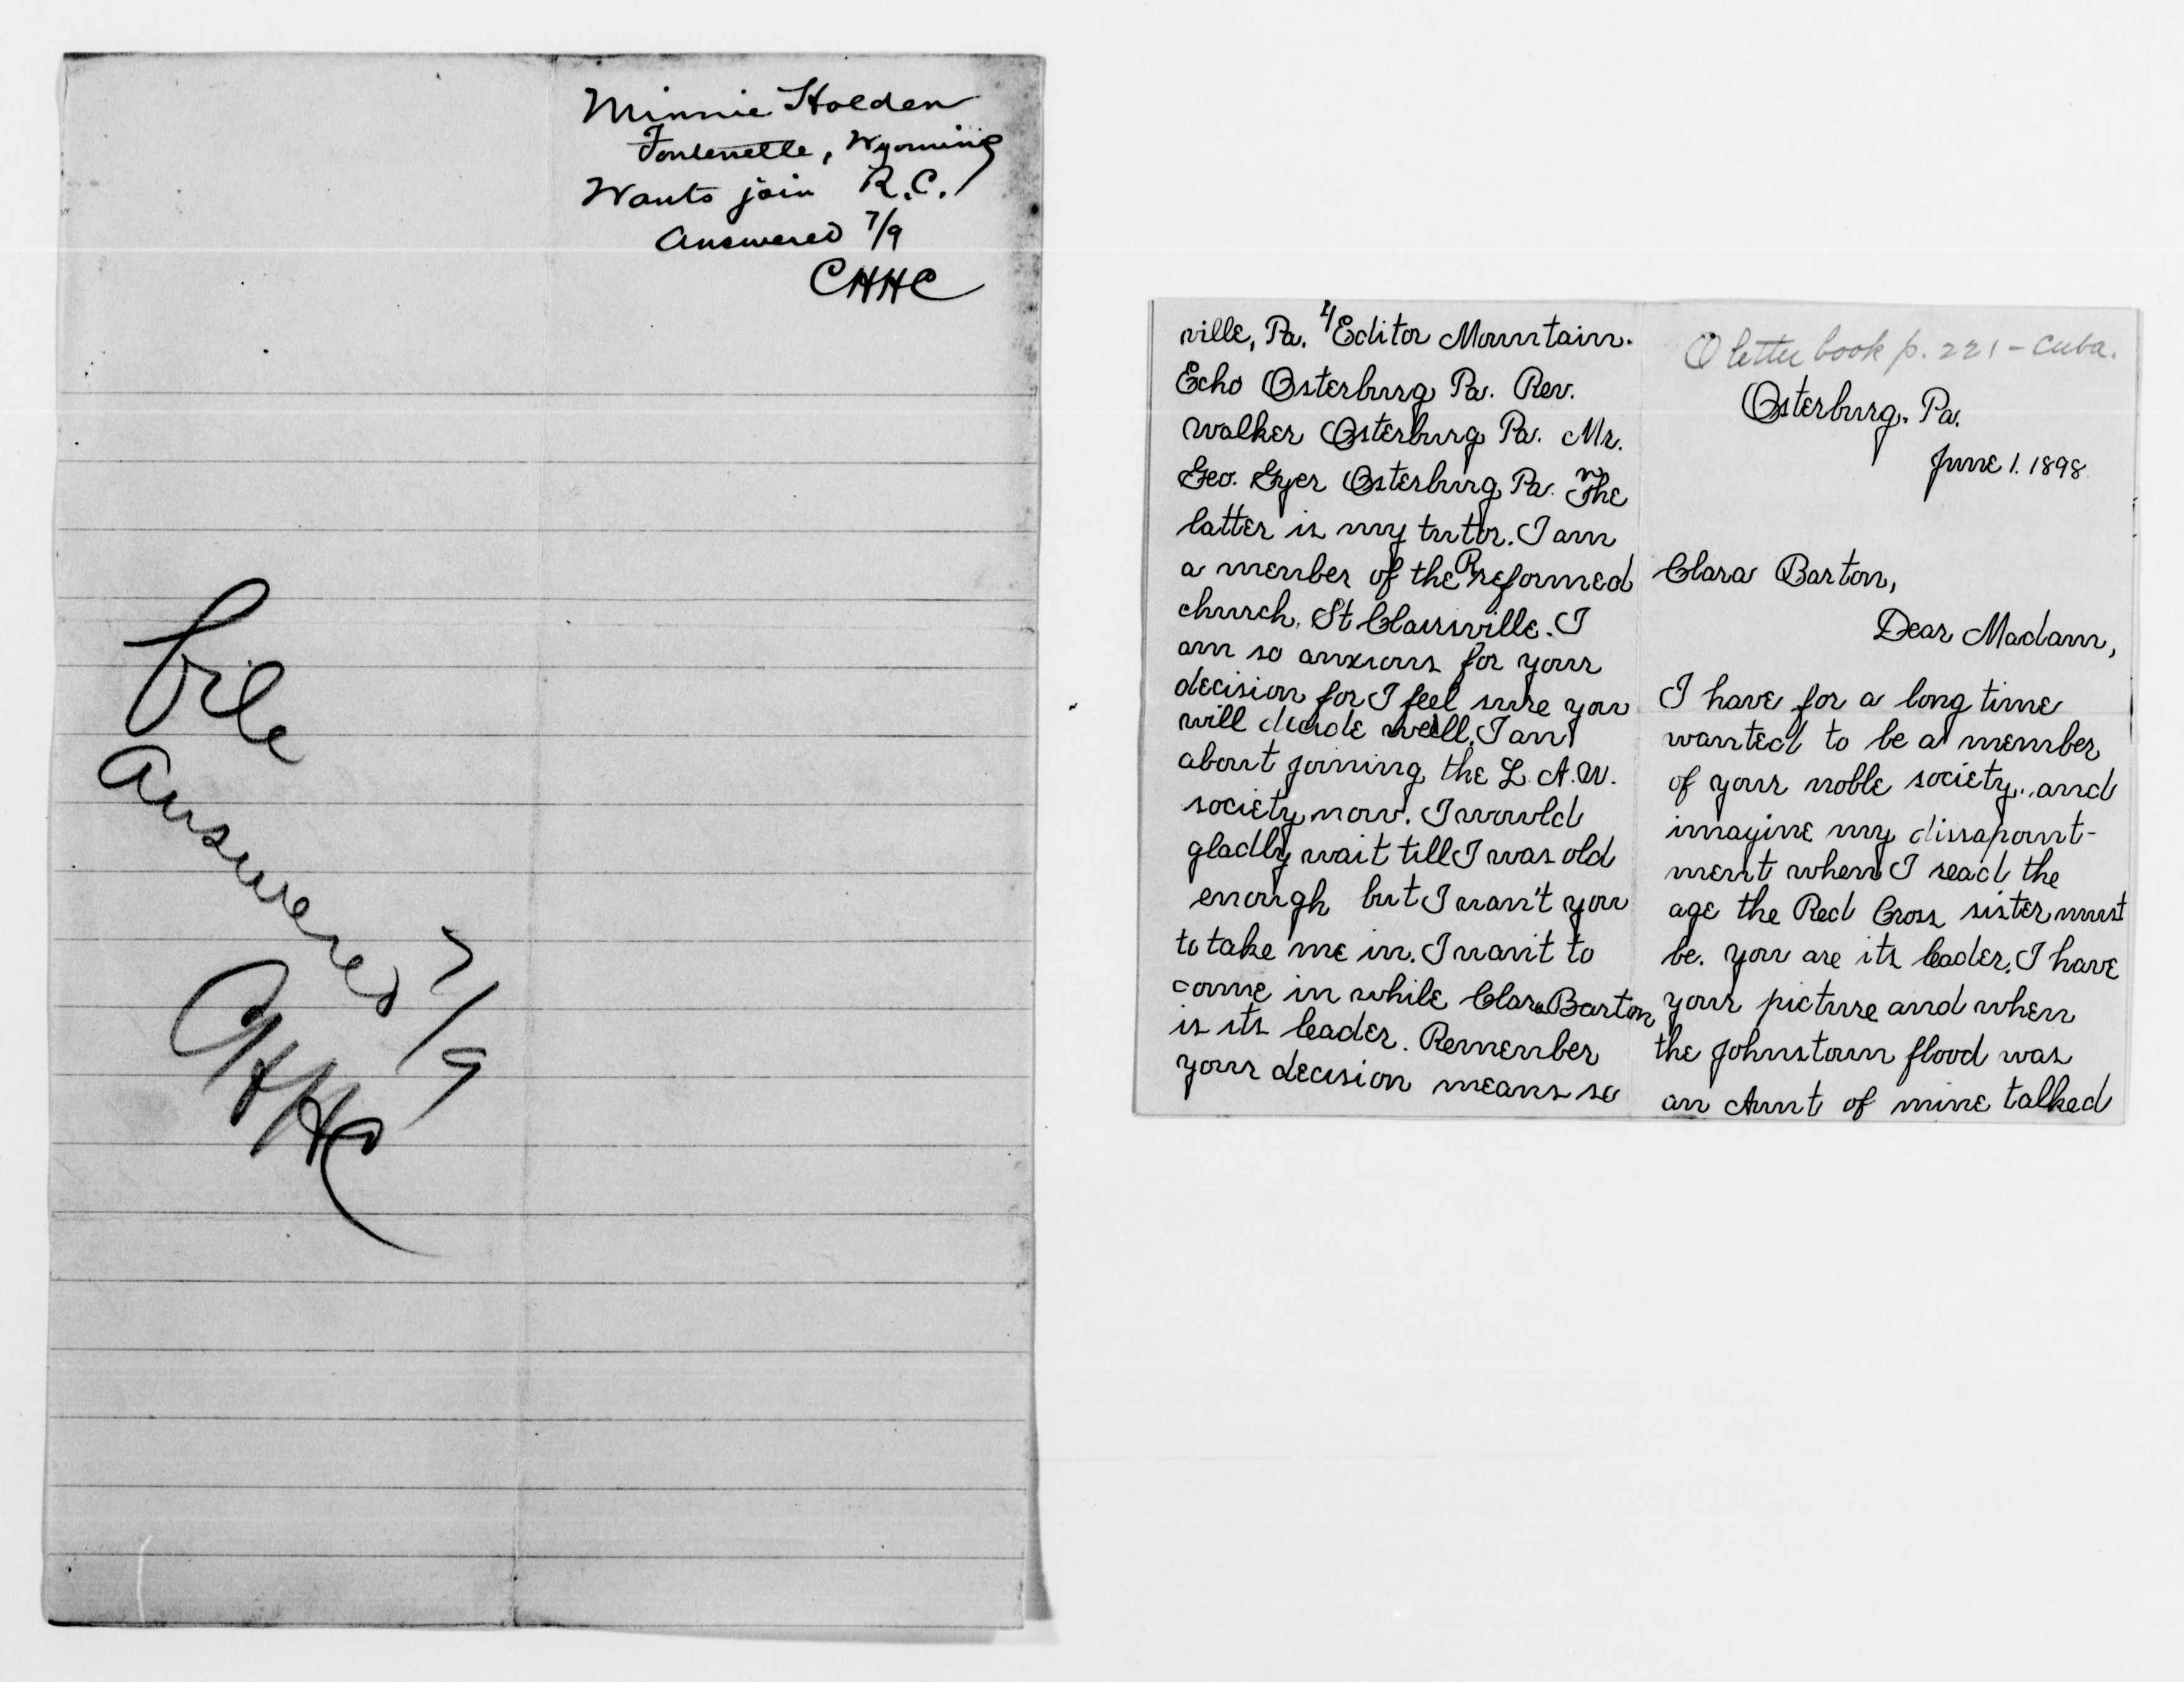 Minnie Holden
Fontenelle, Wyoming
Wants join R.C.
Answered 7/9
CHHC
File
Answered 7/9
CHHC
4
ville, Pa. Editor Mountain.
Echo Osterburg Pa. Rev.
Walker Osterburg Pa. Mr.
Geo. Gyer Osterburg Pa. The
latter is my tutor. I am
a member of the Reformed
church, St Clairsville. I
am so anxious for your
decision for I feel sure you
will decide well. I am
about joining the L. A. W.
society now. I would
gladly wait till I was old
enough but I wan't you
to take me in. I wan't to
come in while Clara Barton
is its leader. Remember
your decision means so
O letter book p. 221 - Cuba.
Osterburg, Pa.
June 1. 1898.
Clara Barton,
Dear Madam,
I have for a long time
wanted to be a member
of your noble society, and
imagine my dissapoint-
ment when I read the
age the Red Cross sister must
be. you are its leader. I have
your picture and when
the Johnstown flood was
an Aunt of mine talked